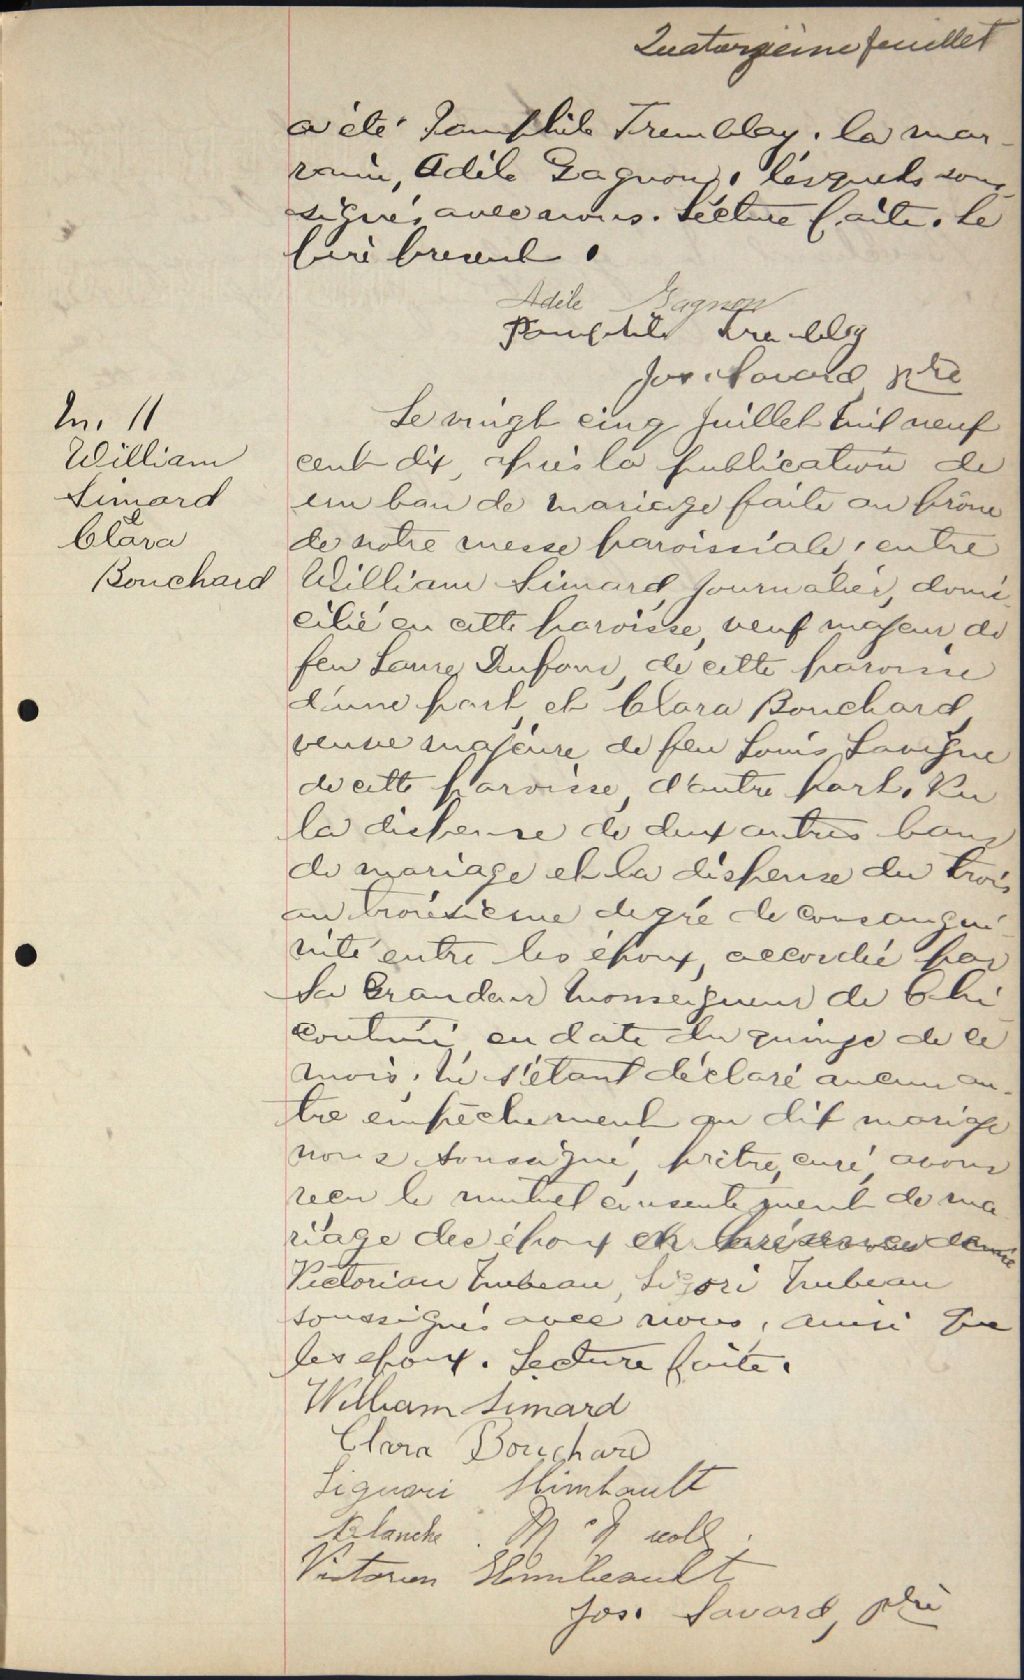 Quatorzième feuillet
a été Pamphile Tremblay. la mar-
raine, Adèle Gagnon, lesquels sous-
signés avec nous. Lecture faite. Le
père présent.
Adèle Gagnon
Pamphile Tremblay
Jos. Savard, ptre
M. 11
William
Simard
&
Clara
Bouchard
Le vingt cinq Juillet mil neuf
cent dix, après la publication de
un ban de mariage faite au prône
de notre messe paroissiale, entre
William Simard, journalier, domi-
cilié en cette paroisse, veuf majeur de
feu Laure Dufour, de cette paroisse
d'une part, et Clara Bouchard,
veuve majeure de feu Louis Lavigne
de cette paroisse, d'autre part. Vu
la dispense de deux autres bans
de mariage et la dispense du trois
au troisième degré de consangui-
nité entre les époux, accordée par
Sa Grandeur Monseigneur de Chi-
coutimi en date du quinze de ce
mois. Ne s'étant déclaré aucun au-
tre empêchement au dit mariage
nous soussigné, prêtre, curé, avons
reçu le mutuel consentement de ma-
riage des époux en présence de
Victorian Imbeau, Ligori Imbeau
soussignés avec nous, ainsi que
les époux. Lecture faite.
William Simard
Clara Bouchard
Liguori
Blanche
Victorien
Jos. Savard, ptre